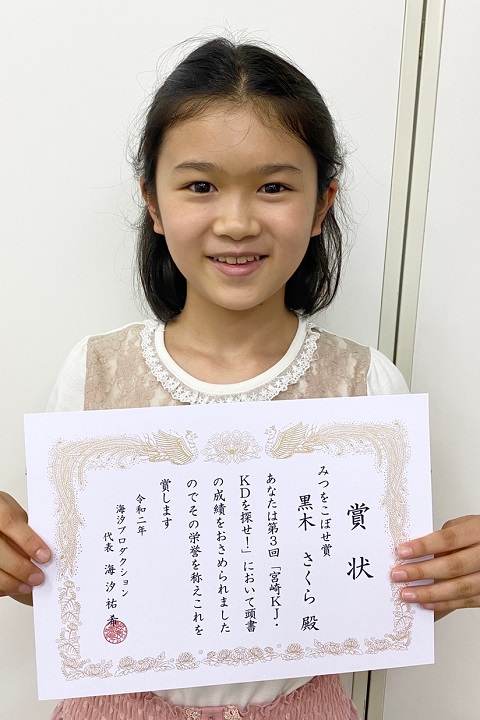 賞状
みつをこぼせ賞
黒木 さくら 殿
あなたは第3回「宮崎KJ・
KDを探せ!」において頭書
の成績をおさめられました
のでその栄誉を称えこれを
賞します
令和二年
海汐プロダクション
代表 海汐祐希